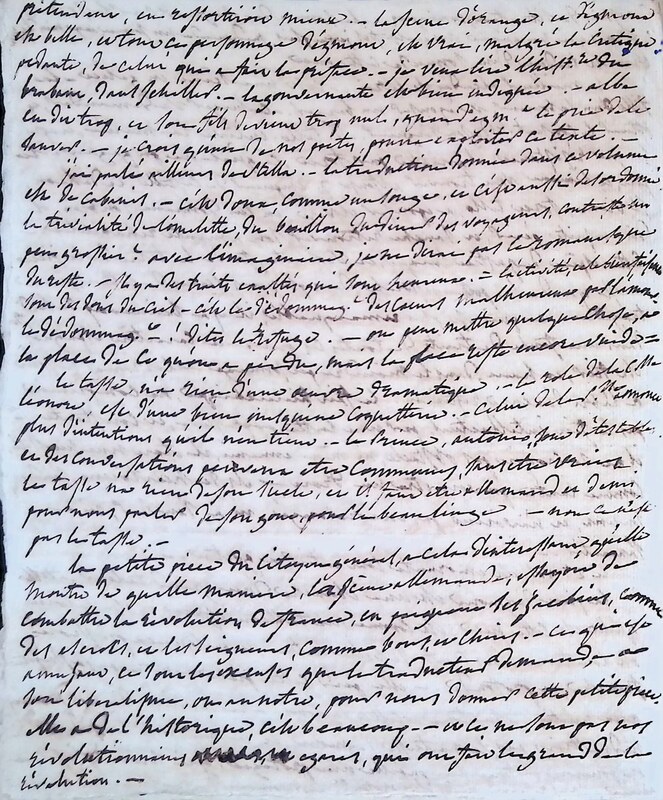 prétendeur, en ressortirois mieux. – la scene d'orange, et d'egmont
est belle, et tout ce personnage d'egmont, est vrai, malgré la critique
pedante, de celui qui a fait la préface. – je veux lire l'histre du
brabant, dans schiller. – la gouvernante est bien indiquée. – albe
en dit trop, et son fils devient trop nul, quand egmt le prie de le
sauver. – je crois qu'un de nos poetes, pourra exploiter ce texte. –
j'ai parlé ailleurs de Stella. – la traduction donnée dans ce volume
est de cabanis. – c'est doux, comme un songe, et c'est aussi désordonné
la trivialité de l'omelette, du bouillon, du diner des voyageurs, contraste un
peu grossiert avec l'imaginaire, je ne dirai pas le romanesque
du reste. – il y a des traits exaltés qui sont heureux. – l'activité, et la bienfaisance
sont des dons du ciel – c'est le dédommagt des coeurs malheureux par l'amour.
le dédommagt – ! dites le refuge. – on peut mettre quelque chose, à
la place de ce qu'on a perdu, mais la place reste encore vuide =
le tasse n'a rien d'une oeuvre dramatique. – le role de la Ctesse
léonore, est d'une bien mesquine coquetterie. – celui de la Psse annonce
plus d'intentions qu'il n'en tient. – le Prince, antonio, sont détestables.
et des conversations peuvent etre communes, sans etre vraies
le tasse n'a rien de son siecle, et il faut etre allemand et demi
pour nous parler de son gout, pour le beau linge – non ce n'est
pas le tasse. –
la petite piece du Citoyen général, a cela d'interessant qu'elle
montre de quelle maniere, la scene allemande, essayoit de
combattre la révolution de france, en peignant les jacobins, comme
des escrocs, et les seigneurs, comme bons, et chers. – ce qui est
amusant, ce sont les excuses que le traducteur demande, à
son liberalisme, ou au notre, pour nous donner cette petite piece.
elle a de l'historique, c'est beaucoup – et ce, ne sont pas nos
révolutionnaires egarés, qui ont fait le grand de la
révolution. –